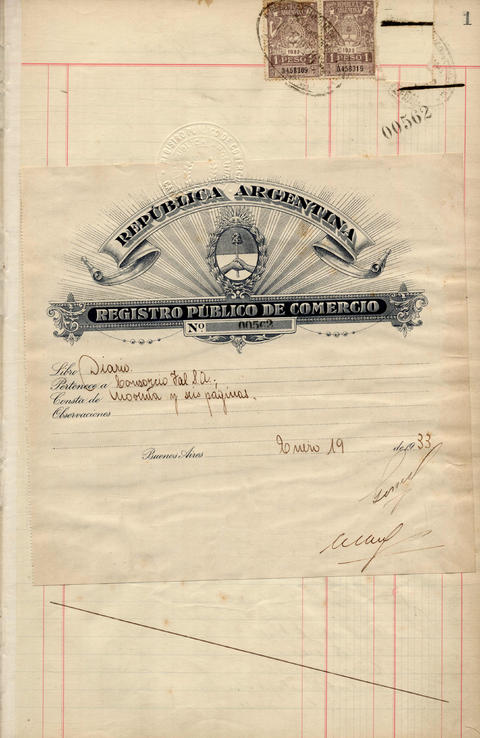 1
REPUBLICA ARGENTINA
1933
1 PESO 1
0458309
REPUBLICA ARGENTINA
1933
1 PESO 1
0458319
00562
REPÚBLICA ARGENTINA
REGISTRO PÚBLICO DE COMERCIO
Nº 00562
Libro Diario
Pertenece a Consorcio Tal S.A.,
Consta de Noventa y seis páginas.
Observaciones
Buenos Aires Enero 19 de 1933